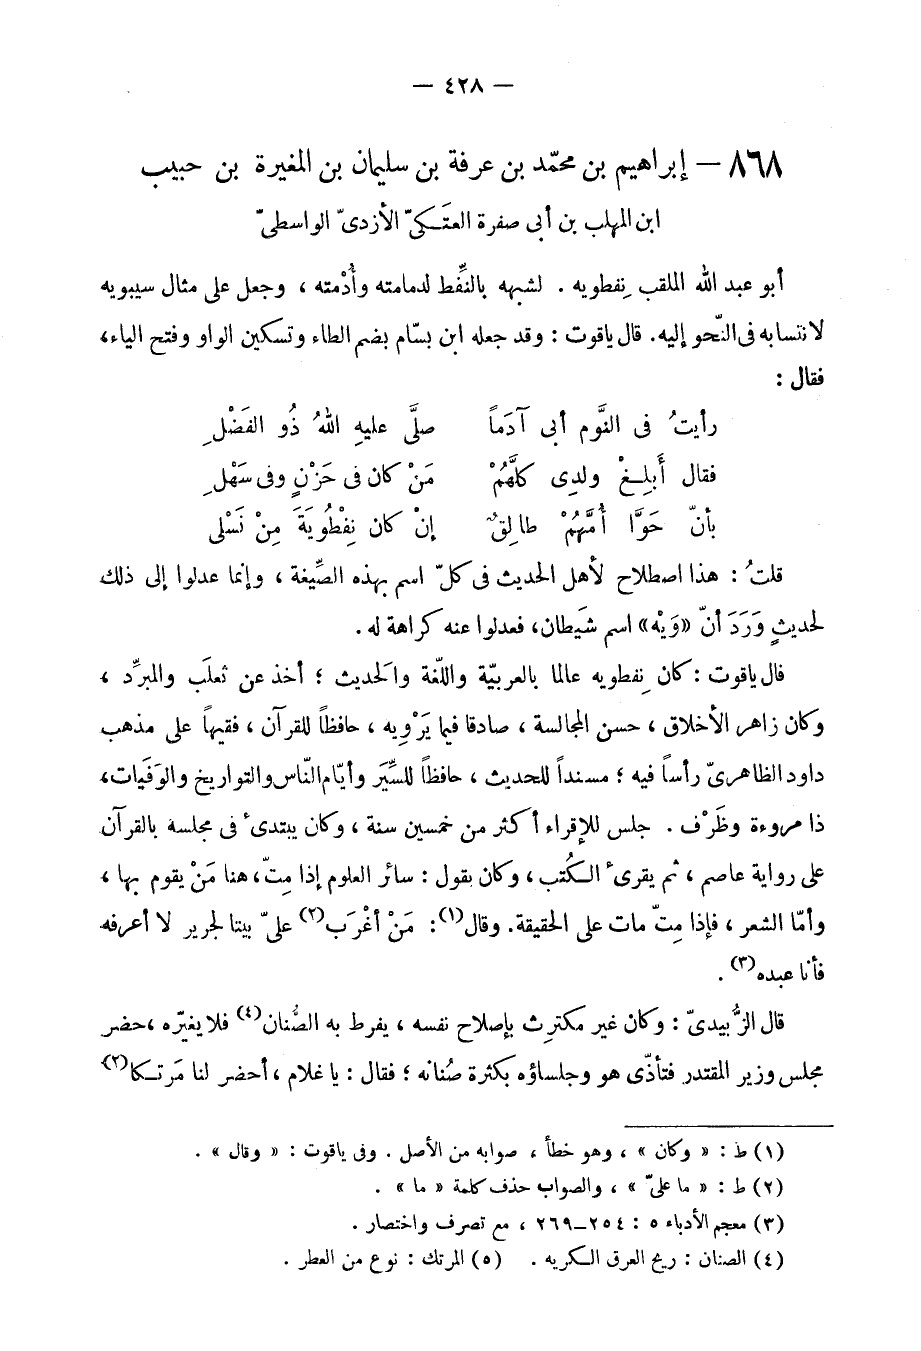 — ٤٢٨ —
٨٦٨ — إبراهيم بن محمّد بن عرفة بن سليمان بن المغيرة بن حبيب
ابن المهلب بن أبى صفرة العتَـكىّ الأزدىّ الواسطىّ
أبو عبد الله الملقب نِفطويه . لشبهه بالنِّفط لدمامته وأُدْمته ، وجعل على مثال سيبويه
لانتسابه فى النّحو إليه. قال ياقوت : وقد جعله ابن بسّام بضم الطاء وتسكين الواو وفتح الياء،
فقال :
رأيتُ فى النَّوم أبى آدَماً صلَّى عليهِ اللهُ ذُو الفَضْلِ
فقال أَبلِـغْ ولدِى كلَّهُمْ مَنْ كان فى حَزْنٍ وفى سَهْلِ
بأنّ حَوَّا أُمَّهُمْ طالِقٌ إنْ كان نِفْطُويَةَ مِنْ نَسْلى
قلتُ : هذا اصطلاح لأهل الحديث فى كلّ اسم بهذه الصِّيغة ، وإنما عدلوا إلى ذلك
لحديثٍ وَرَدَ أنّ «وَيْه» اسم شَيطان، فعدلوا عنه كراهة له .
قال ياقوت : كان نِفطويه عالما بالعربيّة واللّغة والحديث ؛ أخذ عن ثعلَب والمبرِّد ،
وكان زاهر الأخلاق ، حسن المجالسة ، صادقا فيما يَرْوِيه ، حافظاً للقرآن ، فقيهاً على مذهب
داود الظاهرىّ رأساً فيه ؛ مسنداً للحديث ، حافظاً للسِّيَر وأيّام النّاس والتواريخ والوَفَيات،
ذا مروءة وظَرْف . جلس للإقراء أكثر من خمسين سنة ، وكان يبتدىء فى مجلسه بالقرآن
على رواية عاصم ، ثم يقرىء الـكُتب ، وكان يقول : سائر العلوم إذا مِتّ، هنا مَنْ يقوم بها ،
وأمّا الشعر ، فإذا مِتّ مات على الحقيقة. وقال(١): مَنْ أغْرَب(٢) علىّ بيتا لجرير لا أعرفه
فأنا عبده(٣) .
قال الزُّبيدىّ : وكان غير مكترِث بإصلاح نفسه ، يفرط به الصُّنان(٤) فلا يغيّره ،حضر
مجلس وزير المقتدر فتأذّى هو وجلساؤه بكثرة صُنانه ؛ فقال : يا غلام ، أحضر لنا مَرتـكا(٢)
(١) ط : « وكان » ، وهو خطأ ، صوابه من الأصل . وفى ياقوت : « وقال » .
(٢) ط : « ما علىّ » ، والصواب حذف كلمة « ما » .
(٣) معجم الأدباء ٥ : ٢٥٤_٢٦٩ ، مع تصرف واختصار .
(٤) الصنان : ريح العرق الـكريه . (٥) المرتك : نوع من العطر .